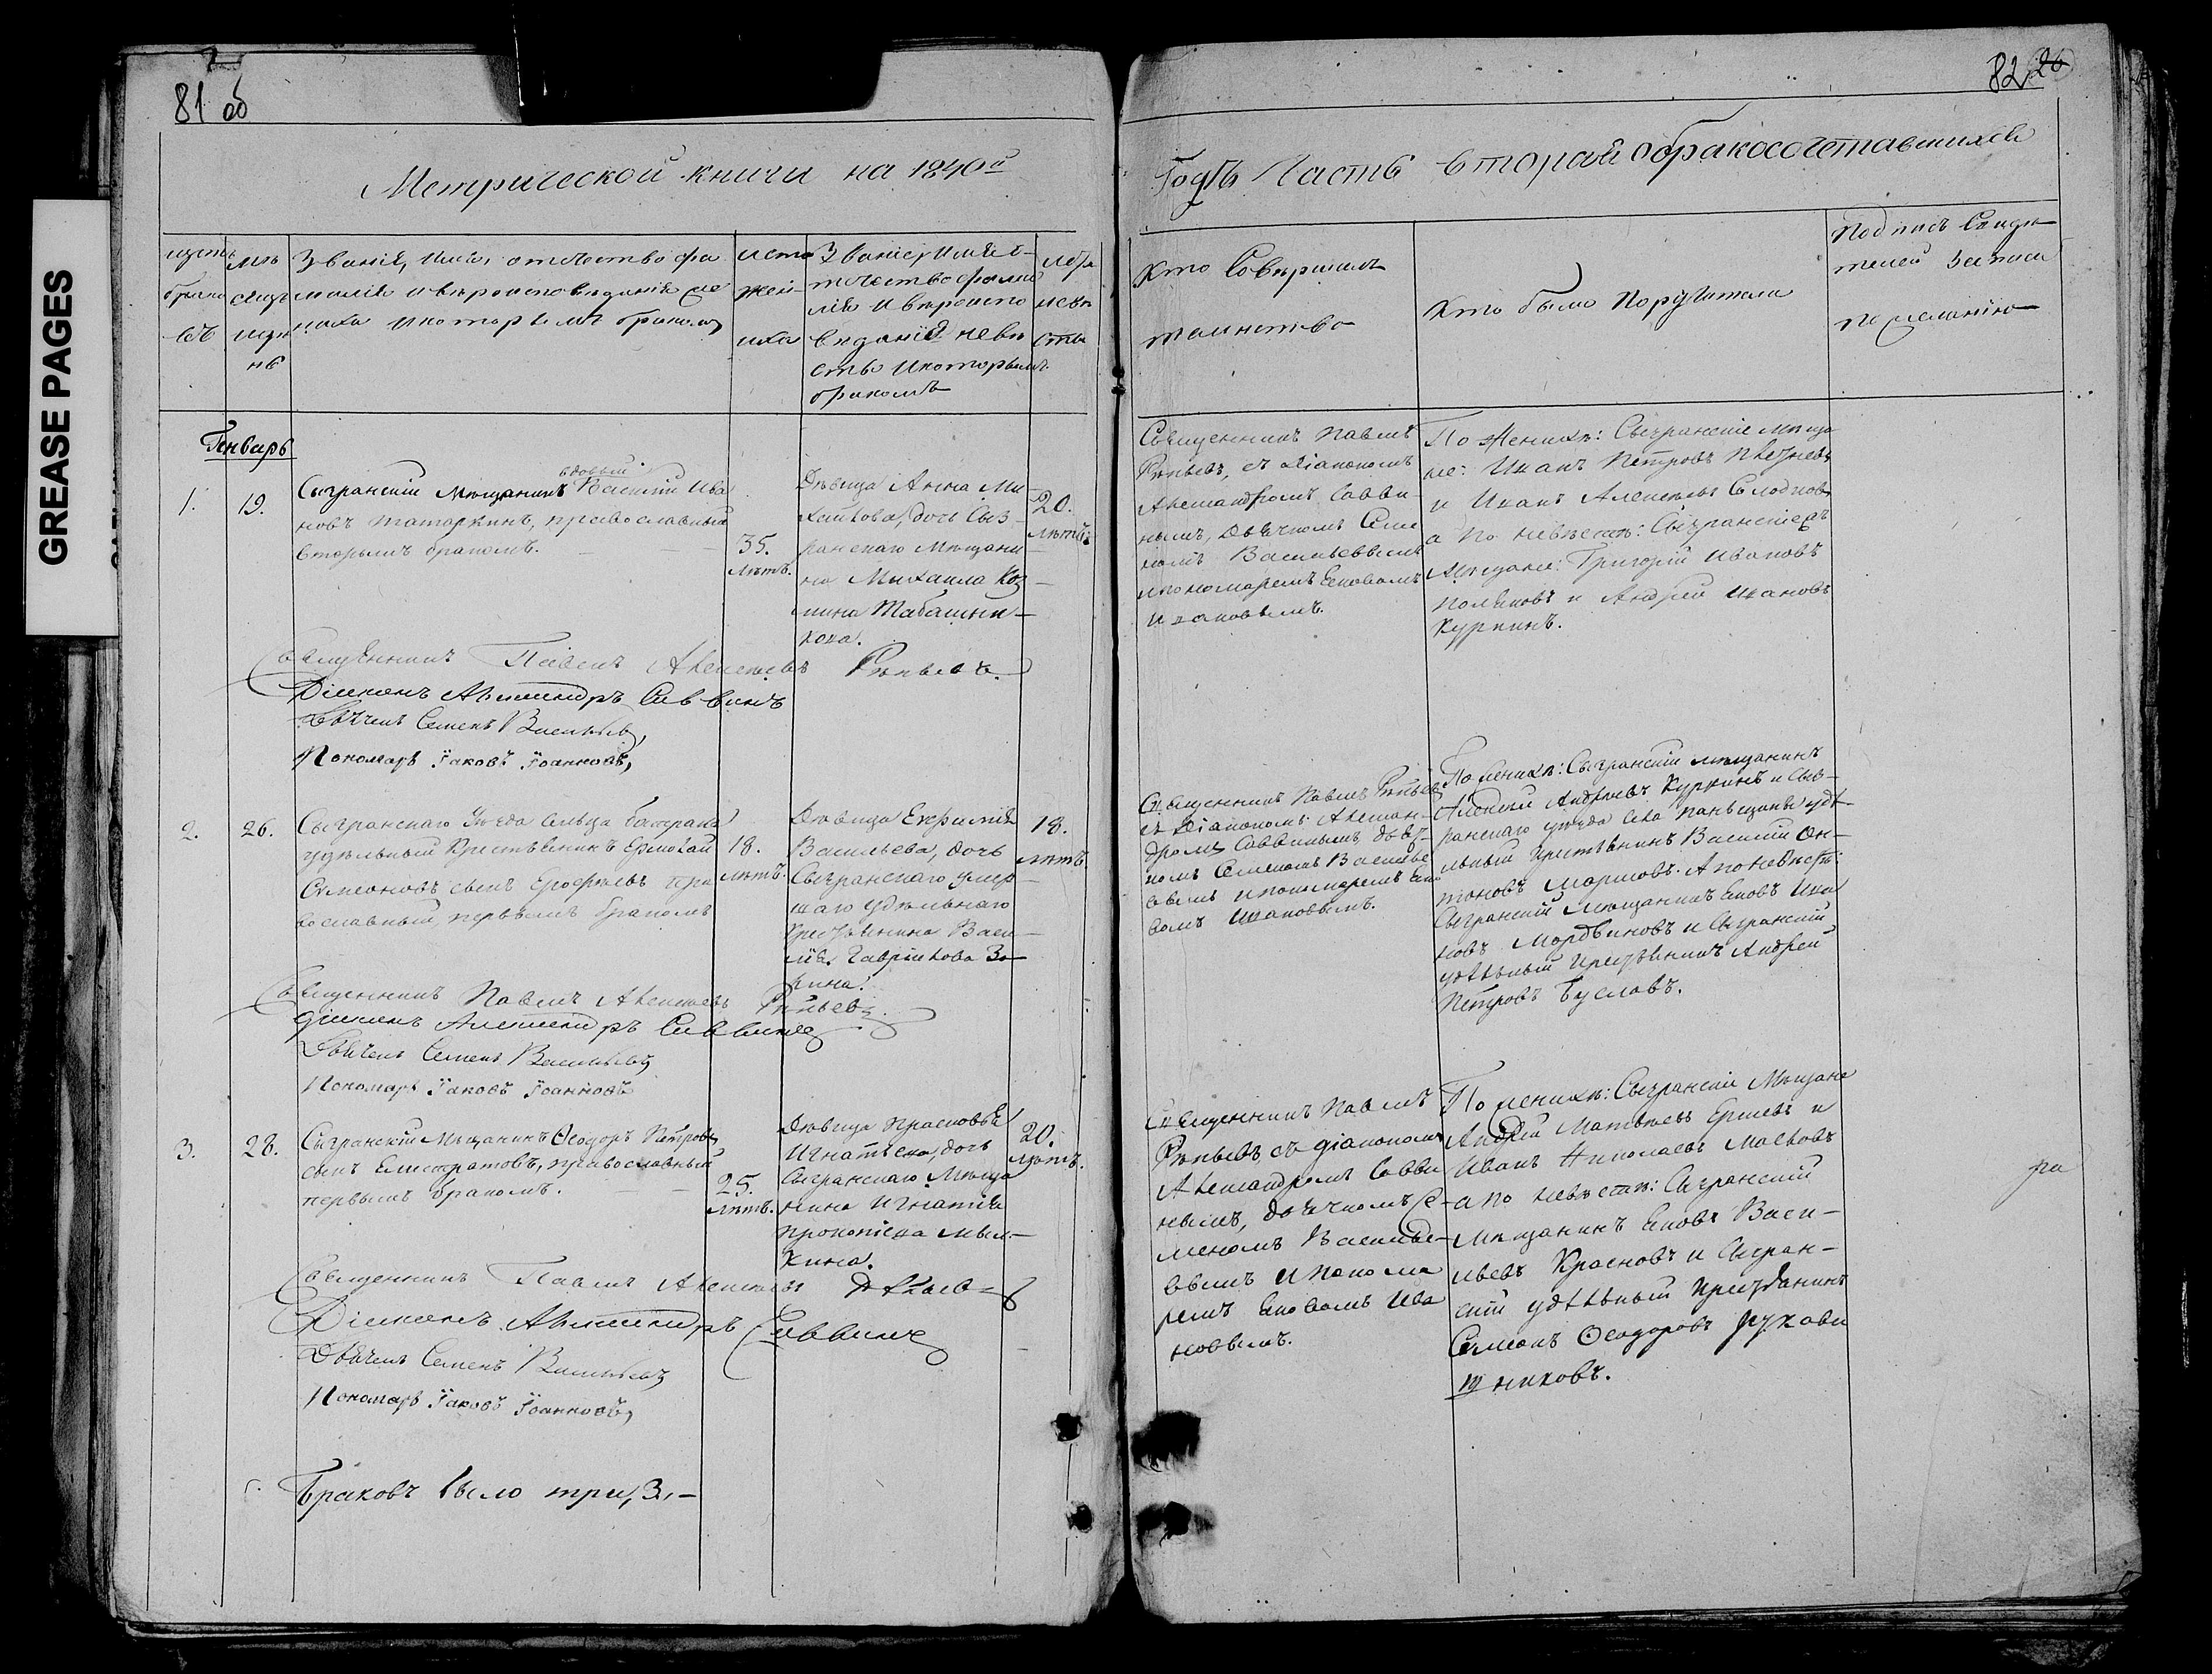 GREASE PAGES
81 об
82 26
Метрической книги на 1840й
Годъ Часть вторая о бракосочетавшихся
Счетъ
браковъ
Мѣсяцъ
и день
Званіе, имя, отчество фа
милія и вѣроисповѣданіе же
ниха и которымъ бракомъ
лета
жен
иха
Званіе, имя, о-
течество фами
лія и вѣроиспо
вѣданіе невѣ
сты и которымъ
бракомъ
лета
невѣ
сты
Кто совершалъ
таинство
Кто были поручители
Подпись свидѣ
телей записи
по желанію
Генварь
1.
19.
вдовый
Сызранскій мѣщанинъ Василій Ива
новъ Татаркинъ, православный
вторымъ бракомъ.
35.
лѣтъ.
Дѣвица Анна Ми
хайлова, дочь Сыз-
ранскаго мѣщани
на Михаила Коз-
мина Табашни-
кова.
20.
лѣтъ.
Священникъ Павелъ
Рѣпьевъ, съ діакономъ
Александромъ Савви-
нымъ, дьячкомъ Семе
номъ Васильевымъ
и пономаремъ Іаковомъ
Ивановымъ.
По женихѣ: Сызранскіе мѣща
не: Иванъ Петровъ
и Иванъ Алексѣевъ
а по невѣстѣ: Сызранскіе
мѣщане: Григорій Ивановъ
Поляковъ и Андрей Ивановъ
Куркинъ.
Священникъ Павелъ Алексѣевъ Рѣпьевъ.
Діаконъ Александръ Саввинъ
Дьячекъ Семенъ Васильевъ,
Пономарь Іаковъ Іоанновъ,
2.
26.
Сызранскаго уѣзда сельца Батрака
удѣльный крестьянинъ Ермолай
Симеоновъ сынъ Ерофѣевъ пра
вославный, первымъ бракомъ
18.
лѣтъ.
Дѣвица Евфимія
Васильева, дочь
Сызранскаго умер-
шаго удѣльнаго
крестьянина Васи-
лія Гаврилова За-
кина.
18.
лѣтъ.
Священникъ Павелъ Рѣпьевъ
съ діакономъ Алексан-
дромъ Саввинымъ, дьяч-
комъ Семеномъ Василье
вымъ и пономаремъ Іако
вомъ Ивановымъ.
По женихѣ: Сызранскій мѣщанинъ
Алексѣй Андреевъ Куркинъ и Сыз-
ранскаго уѣзда села удѣ-
льный крестьянинъ Василій Ан-
тоновъ Марковъ. А по невѣстѣ:
Сызранскій мѣщанинъ Іаковъ Ива
новъ Мордвиновъ и Сызранскій
удѣльный крестьянинъ Андрей
Петровъ Бусловъ.
Священникъ Павелъ Алексѣевъ Рѣпьевъ.
Діаконъ Александръ Саввинъ
Дьячекъ Семенъ Васильевъ
Пономарь Іаковъ Іоанновъ
3.
28.
Сызранскій мѣщанинъ Ѳеодоръ Петровъ
сынъ Елистратовъ, православный
первымъ бракомъ.
25.
лѣтъ.
Дѣвица Прасковья
Игнатьева, дочь
Сызранскаго мѣща
нина Игнатія
Прокопіева Мыл-
кина.
20.
лѣтъ.
Священникъ Павелъ
Рѣпьевъ съ діакономъ
Александромъ Савви
нымъ, дьячкомъ Се-
меномъ Василье-
вымъ и понома
ремъ Іаковомъ Ива
новымъ.
По женихѣ: Сызранскіе мѣщане
Андрей Матвѣевъ Ершевъ и
Иванъ Николаевъ Масловъ
а по невѣстѣ: Сызранскій
мѣщанинъ Іаковъ Васи-
льевъ Красновъ и Сызран-
скій удѣльный крестьянинъ
Симеонъ Ѳеодоровъ Рукави
шниковъ.
Священникъ Павелъ Алексѣевъ
Діаконъ Александръ Саввинъ
Дьячекъ Семенъ Васильевъ
Пономарь Іаковъ Іоанновъ,
ра
Браковъ было три, 3.-